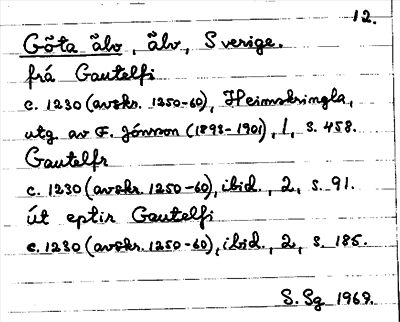 12.
Göta älv, älv, Sverige.
frá Gautelfi
c. 1230 (avskr. 1250-60), Heimskringla,
utg. av F. Jónsson (1893-1901), 1, s. 458.
Gautelfr
c. 1230 (avskr. 1250-60), ibid., 2, s. 91.
út eptir Gautelfi
c. 1230 (avskr. 1250-60), ibid., 2, s. 185.
S. Sg 1969.